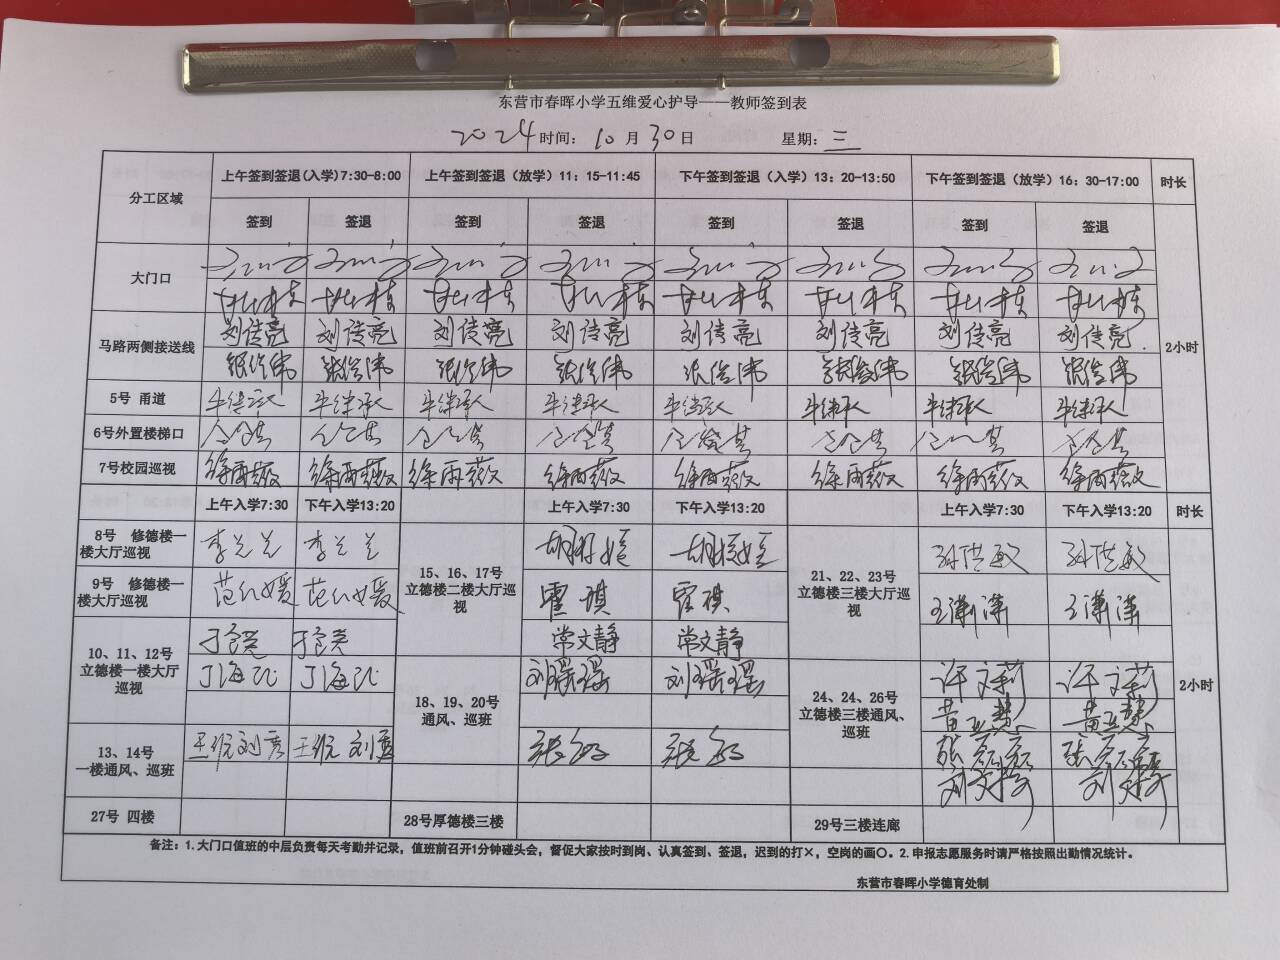 东营市春晖小学五维爱心护导——教师签到表
2024 时间：10月30日 星期：三
分工区域 上午签到签退(入学)7:30-8:00 上午签到签退（放学）11：15-11:45 下午签到签退（入学）13：20-13:50 下午签到签退（放学）16：30-17:00 时长
签到 签退 签到 签退 签到 签退 签到 签退
大门口
马路两侧接送线 刘传亮 刘传亮 刘传亮 刘传亮 刘传亮 刘传亮 刘传亮 刘传亮 2小时
张俊伟 张俊伟 张俊伟 张俊伟 张俊伟 张俊伟 张俊伟 张俊伟
5号 甬道 牛继承 牛继承 牛继承 牛继承 牛继承 牛继承 牛继承 牛继承
6号外置楼梯口
7号校园巡视 徐雨薇 徐雨薇 徐雨薇 徐雨薇 徐雨薇 徐雨薇 徐雨薇 徐雨薇
上午入学7:30 下午入学13:20 上午入学7:30 下午入学13:20 上午入学7:30 下午入学13:20 时长
8号 修德楼一楼大厅巡视 李兰兰 李兰兰
9号 修德楼一楼大厅巡视
15、16、17号立德楼二楼大厅巡视 霍琪 霍琪
常文静 常文静
21、22、23号立德楼三楼大厅巡视 孙洪敏 孙洪敏
王潇潇 王潇潇
10、11、12号立德楼一楼大厅巡视
18、19、20号通风、巡班 刘瑶瑶 刘瑶瑶
24、24、26号立德楼三楼通风、巡班 许文莉 许文莉
张磊磊 张磊磊
2小时
13、14号一楼通风、巡班
27号 四楼 28号厚德楼三楼 29号三楼连廊
备注：1.大门口值班的中层负责每天考勤并记录，值班前召开1分钟碰头会，督促大家按时到岗、认真签到、签退，迟到的打×，空岗的画〇。2.申报志愿服务时请严格按照出勤情况统计。
东营市春晖小学德育处制